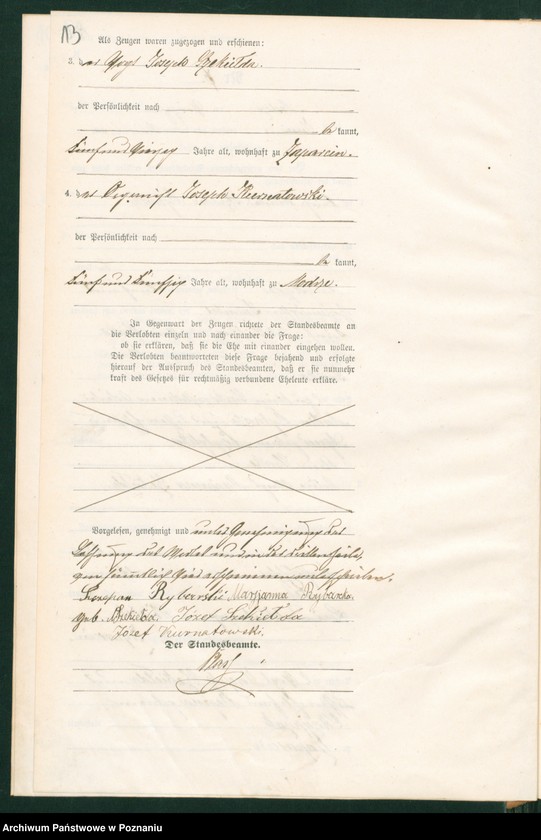 13
Als Zeugen waren zugezogen und erschienen:
3. der Vogt Joseph Szkiełda.
der Persönlichkeit nach
be kannt,
fünfundvierzig Jahre alt, wohnhaft zu
4. der Joseph Kurnatowski.
der Persönlichkeit nach
be kannt,
fünfundfünfzig Jahre alt, wohnhaft zu Modrze.
In Gegenwart der Zeugen richtete der Standesbeamte an
die Verlobten einzeln und nach einander die Frage:
ob sie erklären, daß sie die Ehe mit einander eingehen wollen.
Die Verlobten beantworteten diese Frage bejahend und erfolgte
hierauf der Ausspruch des Standesbeamten, daß er sie nunmehr
kraft des Gesetzes für rechtmäßig verbundene Eheleute erkläre.
Vorgelesen, genehmigt und unter Genehmigung der
unterschrieben.
Szczepan Rybarski Marjanna Rybarska
geb. Józef
Józef Kurnatowski.
Der Standesbeamte.
Archiwum Państwowe w Poznaniu